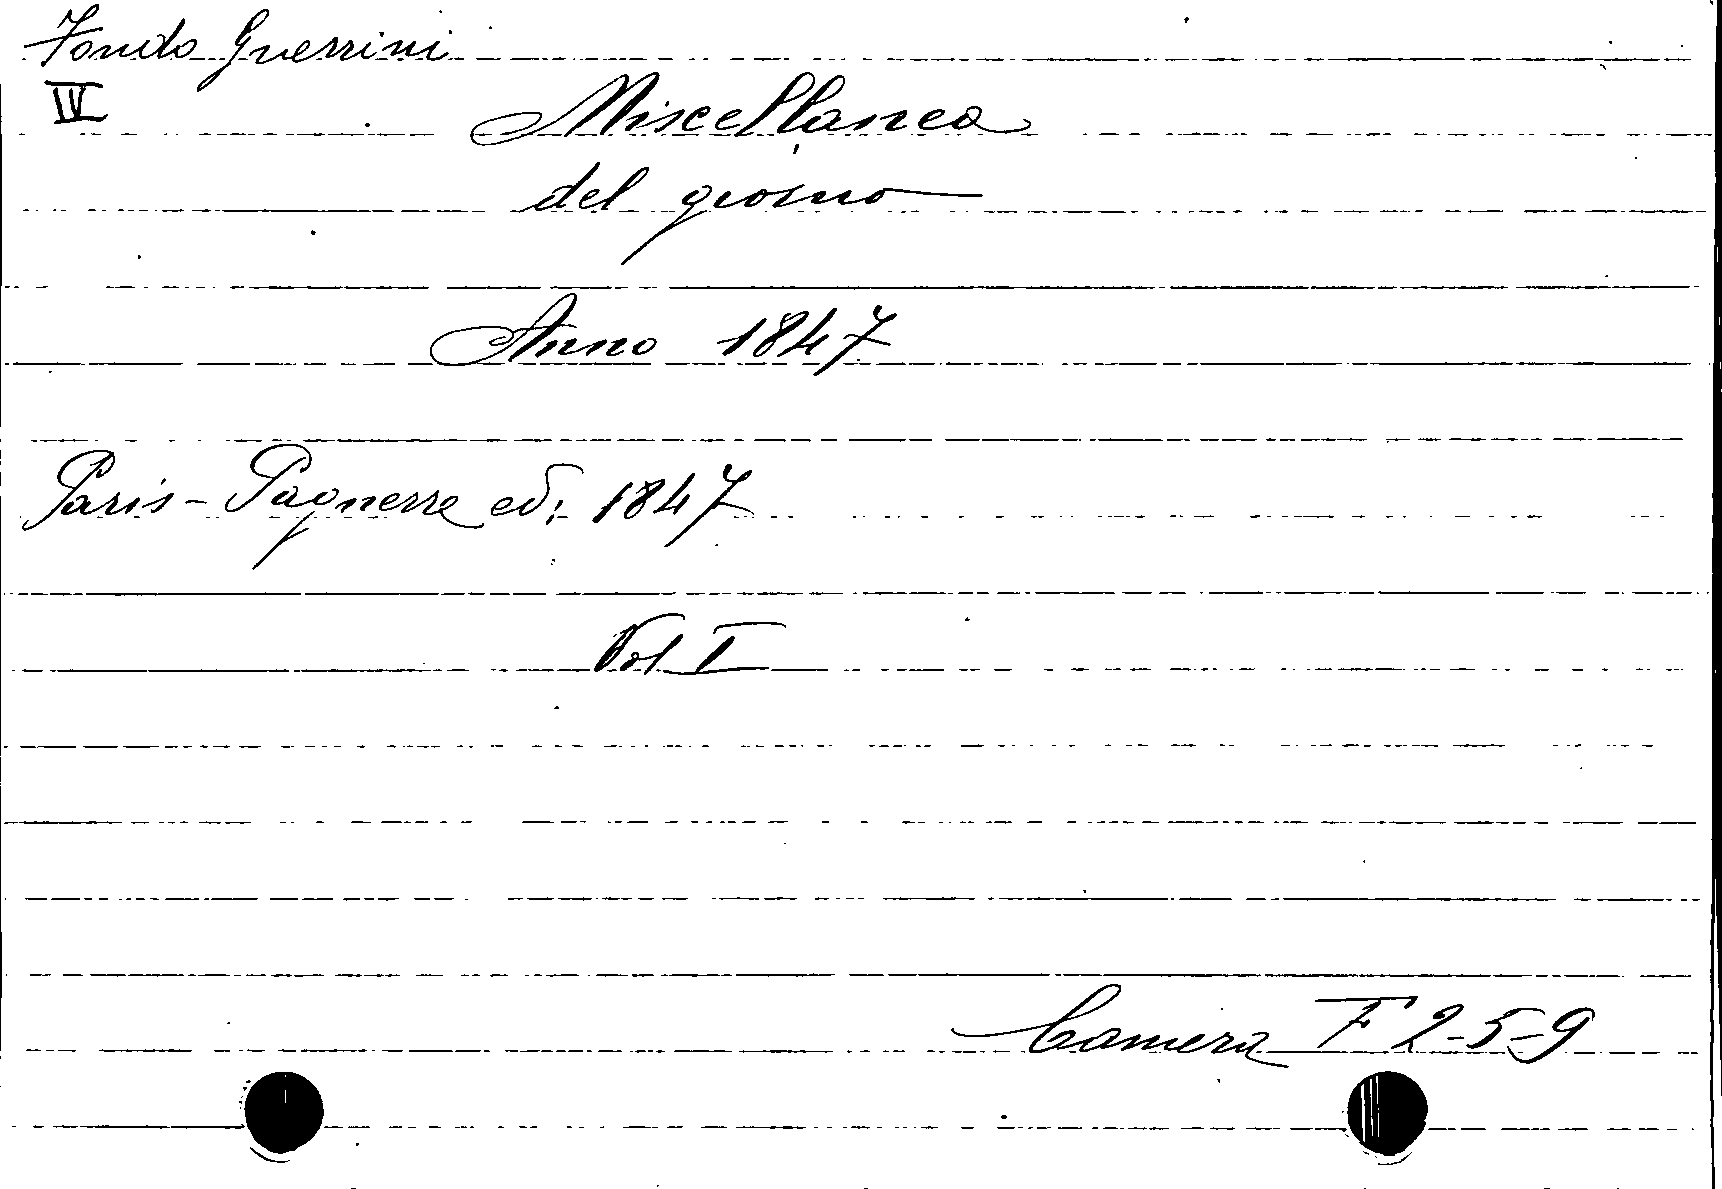 Fondo Guerrini
IV
Miscellanea
del giorno
Anno 1847
Paris - Pagnerre ed: 1847
Vol I
Camera F 2-5-9